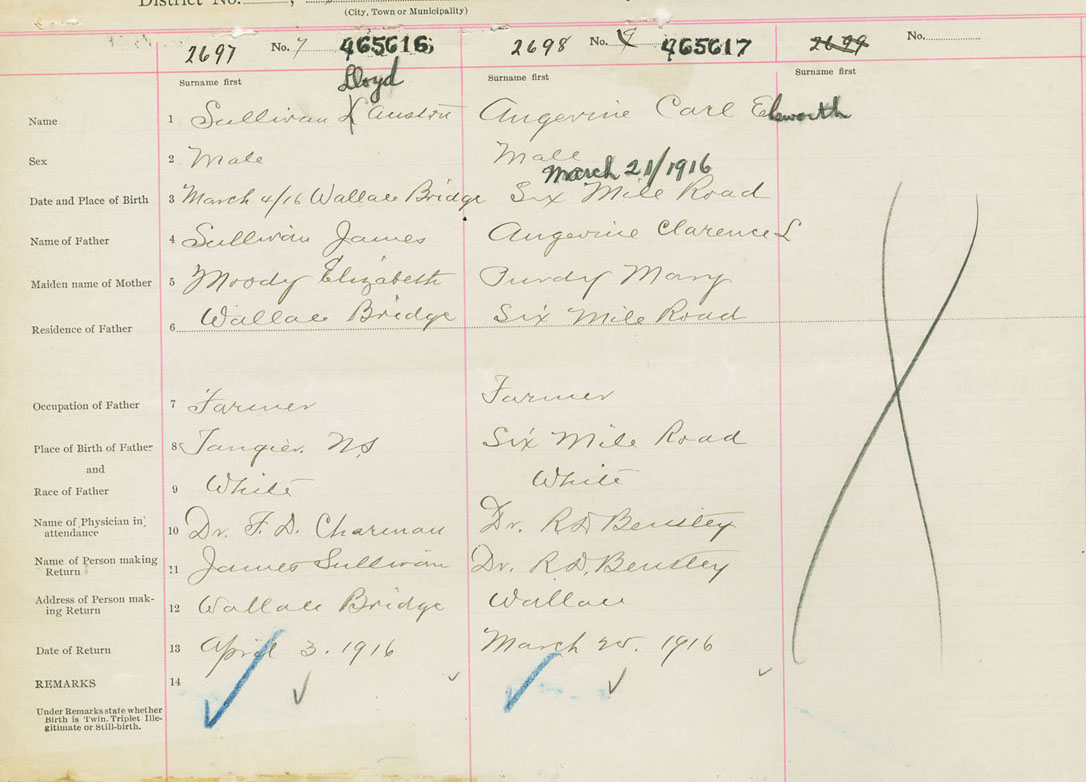 District No.
(City, Town or Municipality)
2697 No. 7 465616 2698 No. 465617 2699 No.
Surname first Lloyd Surname first Surname first
Name 1 Sullivan Austin Angevine Carl Elsworth
Sex 2 Male Male
March 21/1916
Date and Place of Birth 3 March 4/16 Wallace Bridge Six Mile Road
Name of Father 4 Sullivan James Angevine Clarence L
Maiden name of Mother 5 Moody Elizabeth Purdy Mary
Residence of Father 6 Wallace Bridge Six Mile Road
Occupation of Father 7 Farmer Farmer
Place of Birth of Father 8 Tangier NS Six Mile Road
and
Race of Father 9 White White
Name of Physician in
attendance 10 Dr. F. D. Charman Dr. R D
Name of Person making
Return 11 James Sullivan Dr. R. D.
Address of Person mak-
ing Return 12 Wallace Bridge Wallace
Date of Return 13 April 3. 1916 March 25. 1916
REMARKS 14
Under Remarks state whether
Birth is Twin. Triplet Ille-
gitimate or Still-birth.